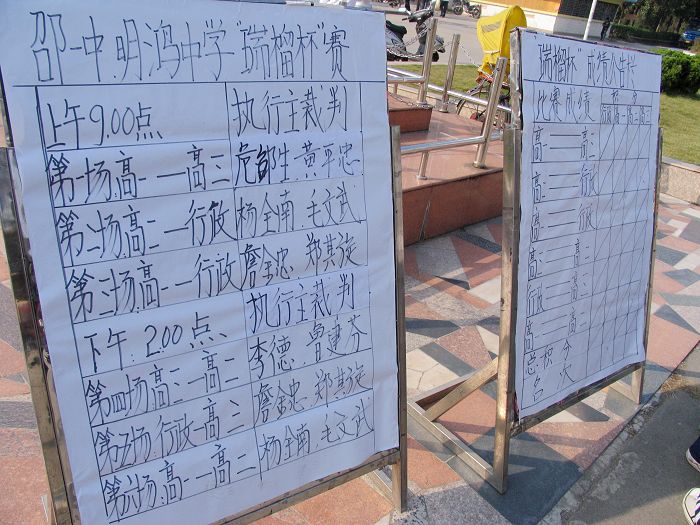 邵一中.明鸿中学“瑞榴杯”赛
上午9.00点 执行主裁判
第一场.高一——高三 危部生.黄平忠
第二场.高二—行政 杨全南.毛文武
第三场.高一—行政 詹金忠.郑其旋
下午.2.00点. 执行主裁判
第四场高三—高二 李德.曾建芬
第五场.行政—高三 詹金忠.郑其旋
第六场.高一—高二 杨全南.毛文武
“瑞榴杯”成绩公告栏
比赛成绩
行政 高一 高二 高三
高一——高三
高二——行政
高一——行政
高三——高二
行政——高三
高一——高二
总积分
名次